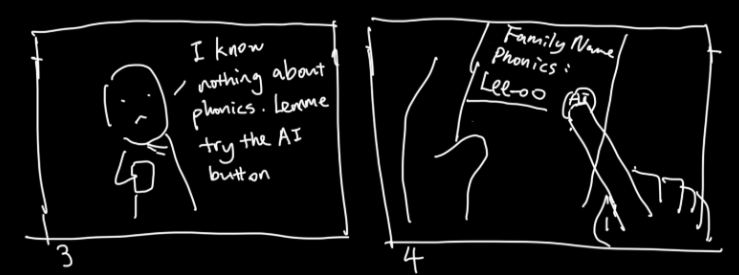 I know
nothing about
phonics. Lemme
try the AI
button
3
Family Name
Phonics:
Lee-oo
AI
4